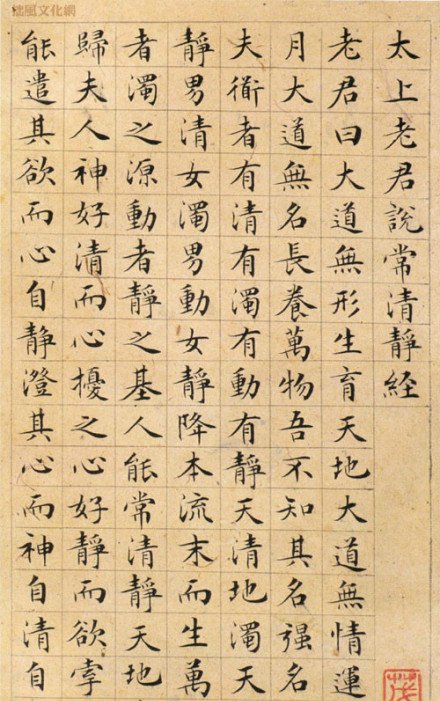 拙風文化網
太上老君說常清靜経
老君曰大道無形生育天地大道無情運
月大道無名長養萬物吾不知其名强名
夫衜者有清有濁有動有靜天清地濁天
靜男清女濁男動女靜降本流末而生萬
者濁之源動者靜之基人能常清靜天地
歸夫人神好清而心擾之心好靜而欲牽
能遣其欲而心自静澄其心而神自清自